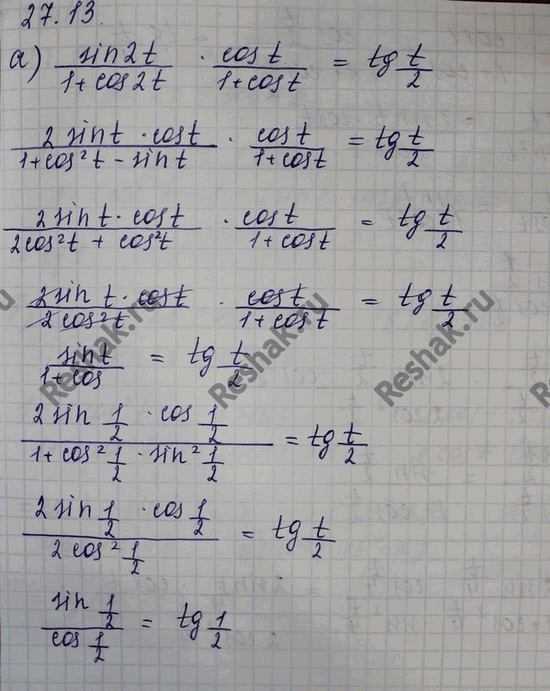 27.13.
а) sin2t/(1+cos2t) · cost/(1+cost) = tg t/2
2 sint · cost/(1+cos²t - sint) · cost/(1+cost) = tg t/2
2 sint · cost/(2cos²t + cos²t) · cost/(1+cost) = tg t/2
2 sin t · cost/(2 cos²t) · cost/(1+cost) = tg t/2
sint/(1+cos) = tg t/2
2 sin 1/2 · cos 1/2/(1 + cos² 1/2 · sin² 1/2) = tg t/2
2 sin 1/2 · cos 1/2/(2 cos² 1/2) = tg t/2
sin 1/2/(cos 1/2) = tg 1/2
Reshak.ru
Reshak.ru